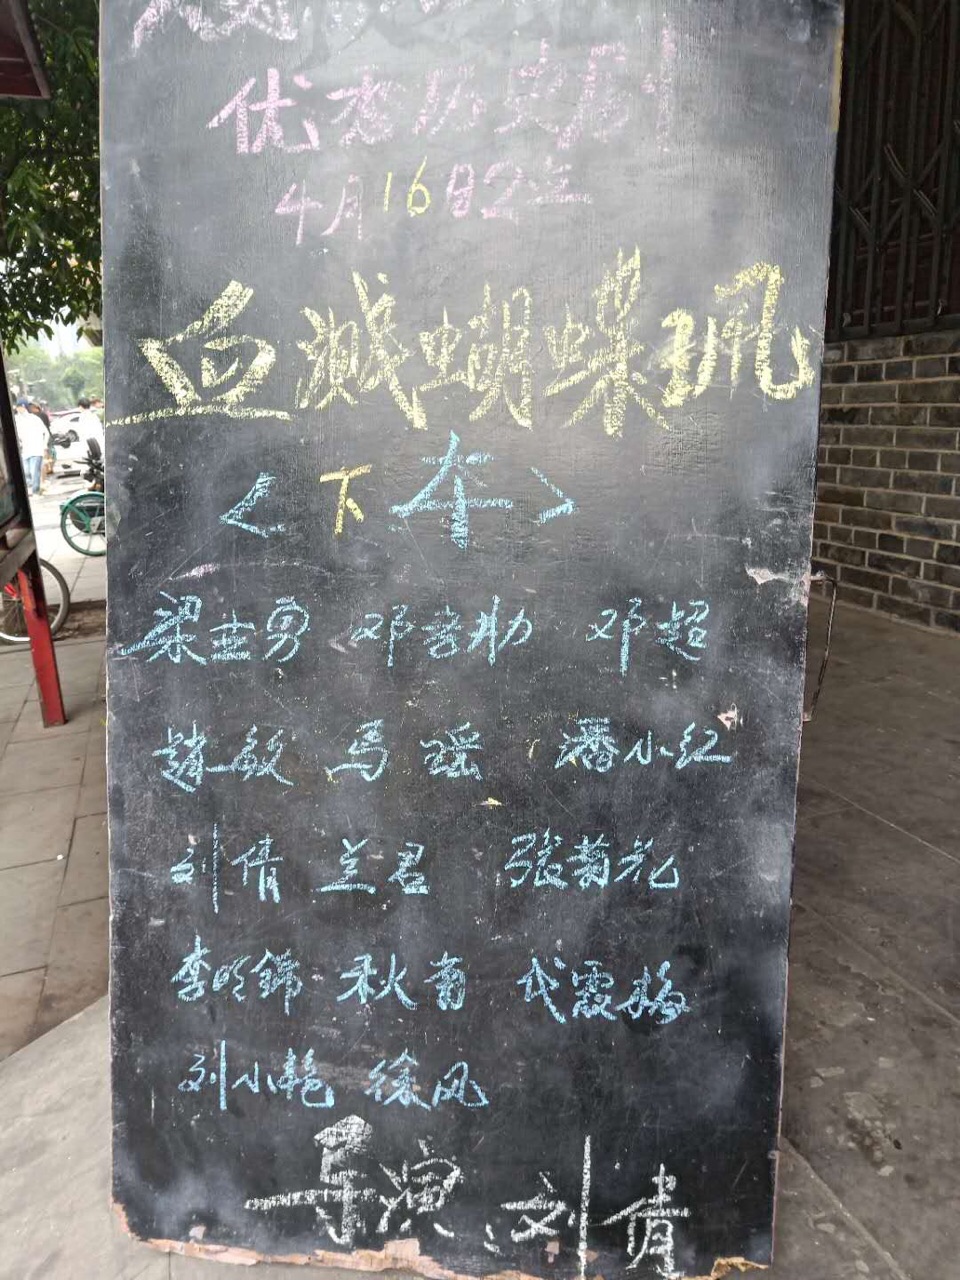 优秀历史剧
4月16日2:00
血溅蝴蝶珮
<下本>
梁圭勇 邓孝勋 邓超
赵敏 马瑶 潘小红
刘倩 兰君 张菊花
李明锦 秋菊 代霞梅
刘小艳 徐凤
导演:刘倩